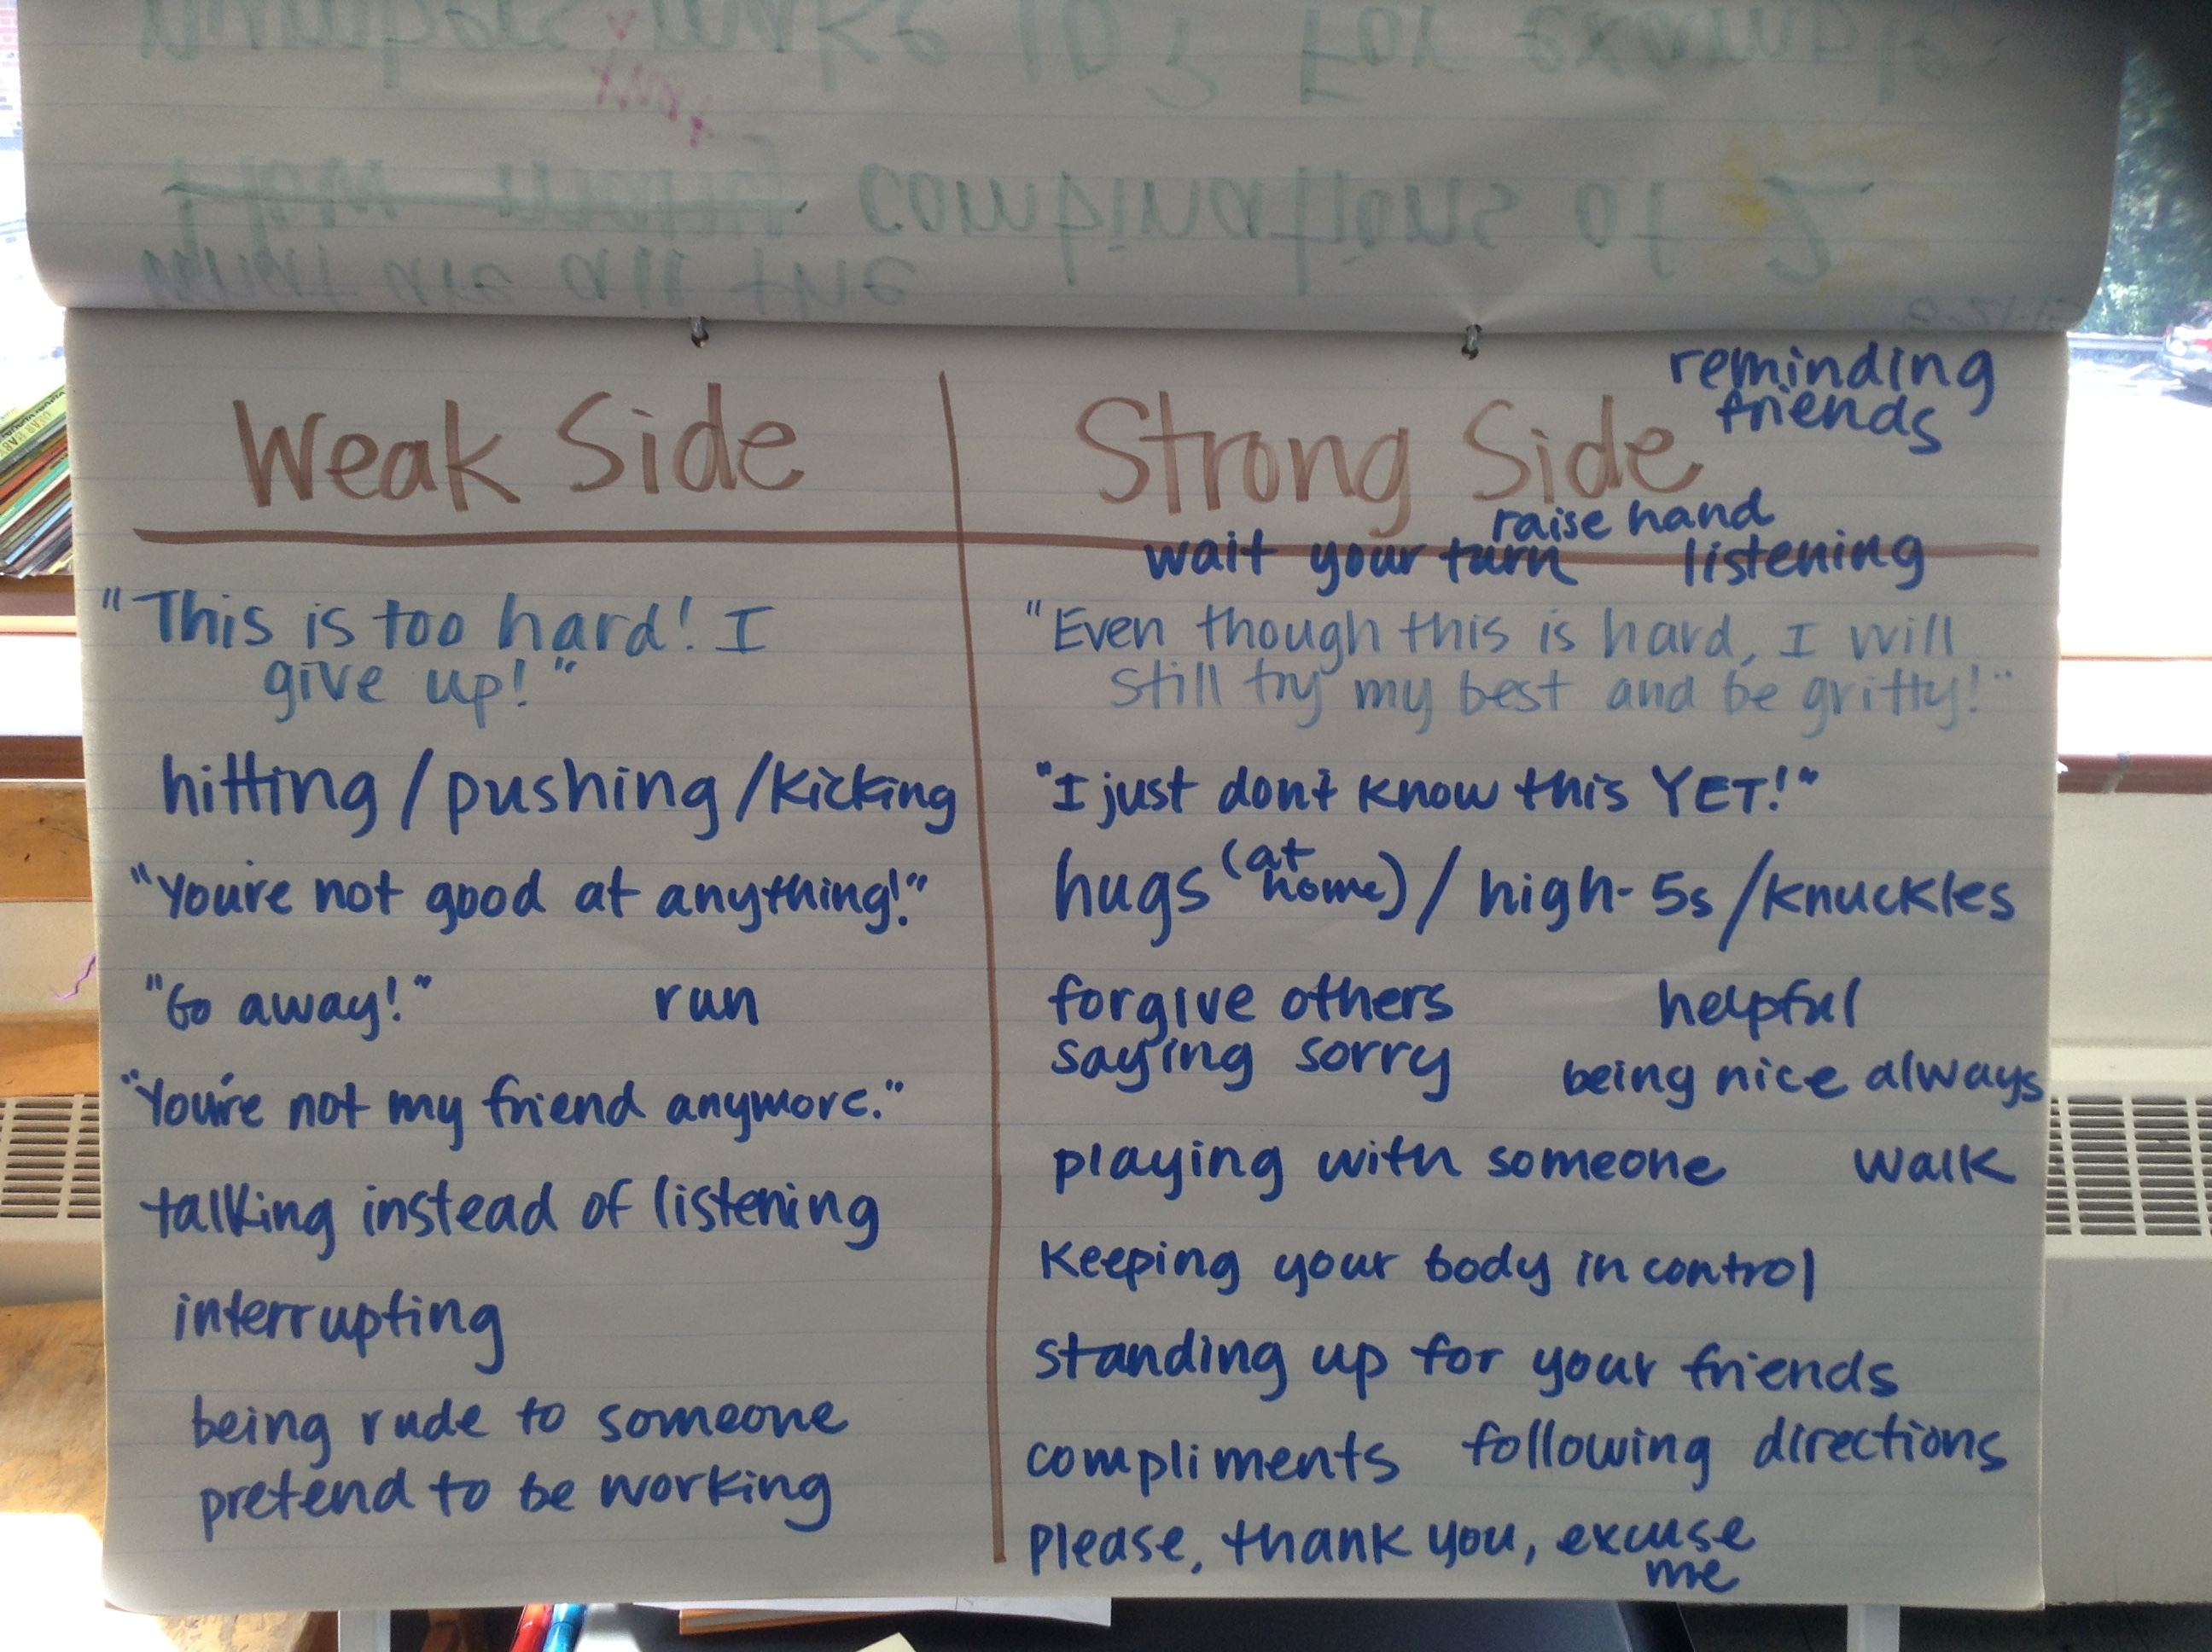 numbers make 10? For example:
want
How many combinations of 2
What are all the
Weak Side
"This is too hard! I
give up!"
hitting / pushing / kicking
"You're not good at anything!"
"Go away!" run
"You're not my friend anymore."
talking instead of listening
interrupting
being rude to someone
pretend to be working
reminding
friends
Strong Side
raise hand
wait your turn listening
"Even though this is hard, I will
still try my best and be gritty!"
"I just don't know this YET!"
hugs (at home) / high-5s / knuckles
forgive others helpful
saying sorry being nice always
playing with someone walk
keeping your body in control
standing up for your friends
compliments following directions
please, thank you, excuse
me